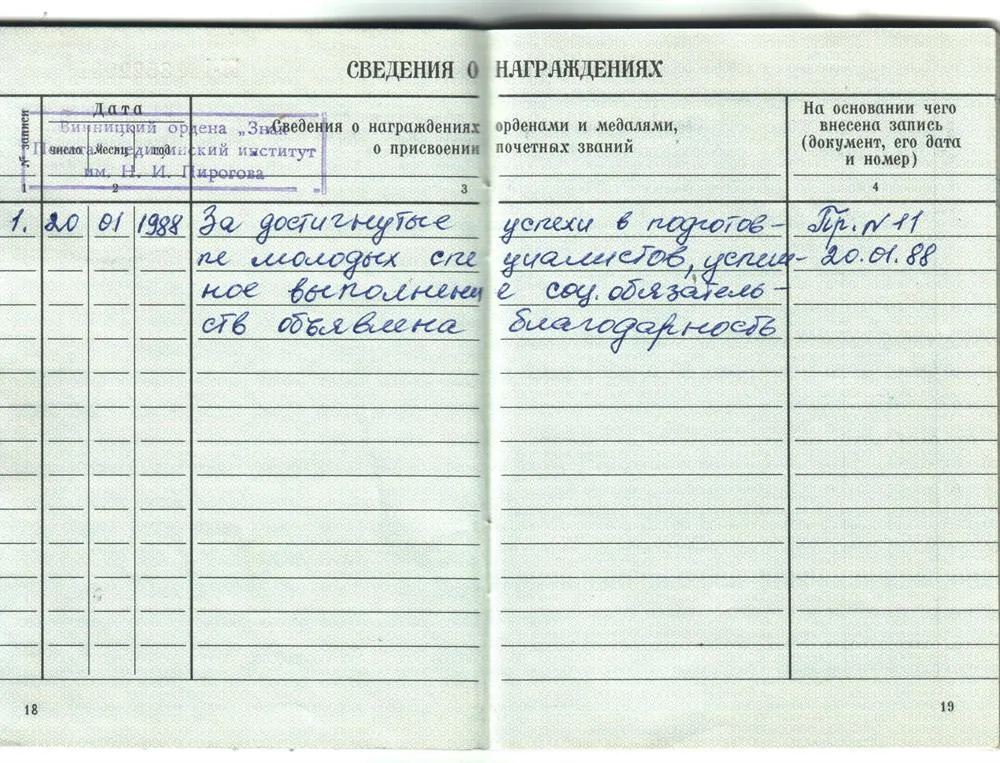 СВЕДЕНИЯ О НАГРАЖДЕНИЯХ
№ записи
Дата
число месяц год
Сведения о награждениях орденами и медалями,
о присвоении почетных званий
На основании чего
внесена запись
(документ, его дата
и номер)
Винницкий ордена „Знак
Почета" медицинский институт
им. Н. И. Пирогова
1 2 3 4
1. 20 01 1988 За достигнутые успехи в подготов- Пр. N 11
ке молодых специалистов, успеш- 20.01.88
ное выполнение соц. обязатель-
ств объявлена благодарность
18 19